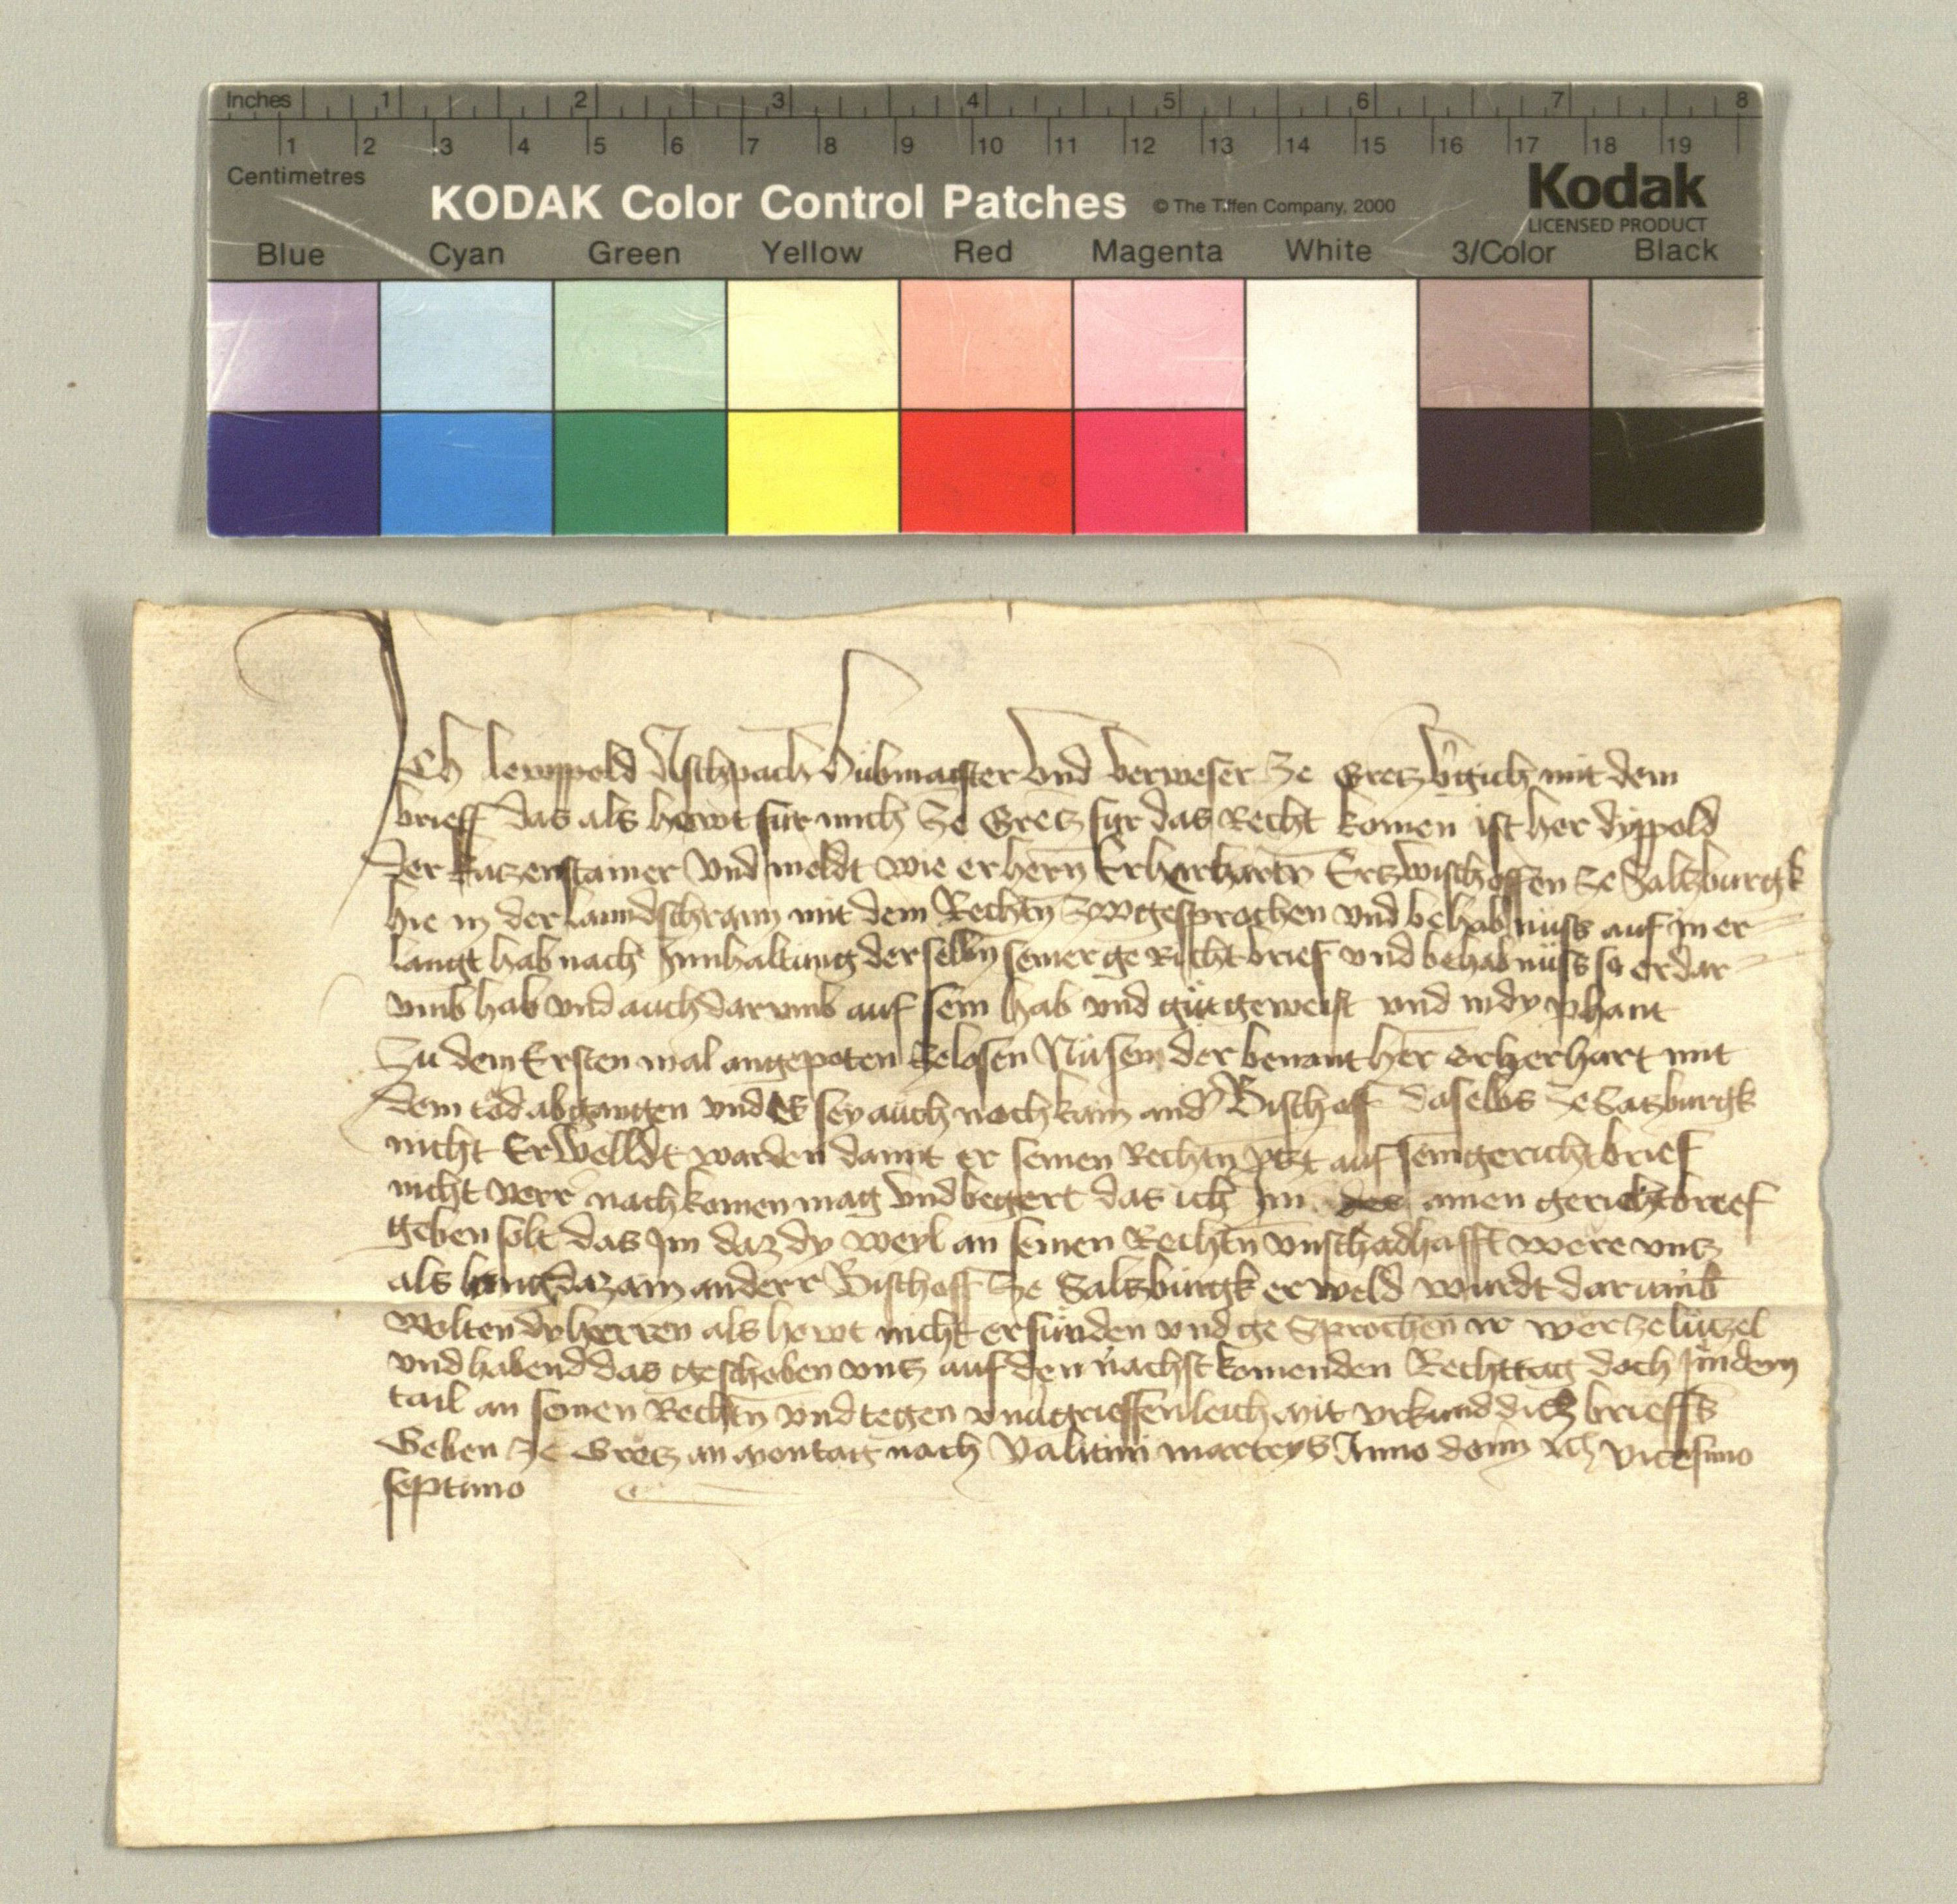 Inches 1 2 3 4 5 6 7 8
1 2 3 4 5 6 7 8 9 10 11 12 13 14 15 16 17 18 19
Centimetres
KODAK Color Control Patches © The Tiffen Company, 2000 Kodak
LICENSED PRODUCT
Blue Cyan Green Yellow Red Magenta White 3/Color Black
Ich lewppold Aschpach hubmaister vnd verweser ze Gretz vgich mit dem
brieff das als hewt fur mich ze Gretz fur das Recht komen ist her dyppold
der katzenstainer vnd meldt wie er hern Erherhartn Ertzwischoffen ze Saltzburgk
hie in der lanndschrann mit dem Rechtn zwgesprochen vnd behabnüss auf in er
langt hab nach Innhaltung derselbn seiner gericht brief vnd behabnüss so er dar
vmb hab vnd auch darvmb auf sein hab vnd gut geweist vnd in dy phant
zu dem Ersten mal angepoten zelosen Nu sein der benant her erherhart mit
dem tod abgangen vnd es sey auch noch kain and Bischoff daselbs ze Satzburgk
nicht Erwelldt warden damit er seinen Rechtn yetzt auf sein gerichtbrief
nicht verr nachkomen mag vnd begert das ich im ainen gerichtbrief
geben solt das Im daz dy weyl an seinen Rechtn vnschadhafft were vntz
als lang daz ain anderr Bischoff ze Saltzburgk erweld wurdt darumb
wolten dy herren als hewt nicht erfunden vnd gesprochen ir wer ze lützel
vnd habend das geschoben vntz auf den nachstkomenden Rechttag doch Jndem
tail an seinen Rechtn vnd tegen vnuagrieffenleich mit vrkund dicz brieffs
Geben ze Gretz an montag nach Valitini martrys Anno domi vicesimo
septimo